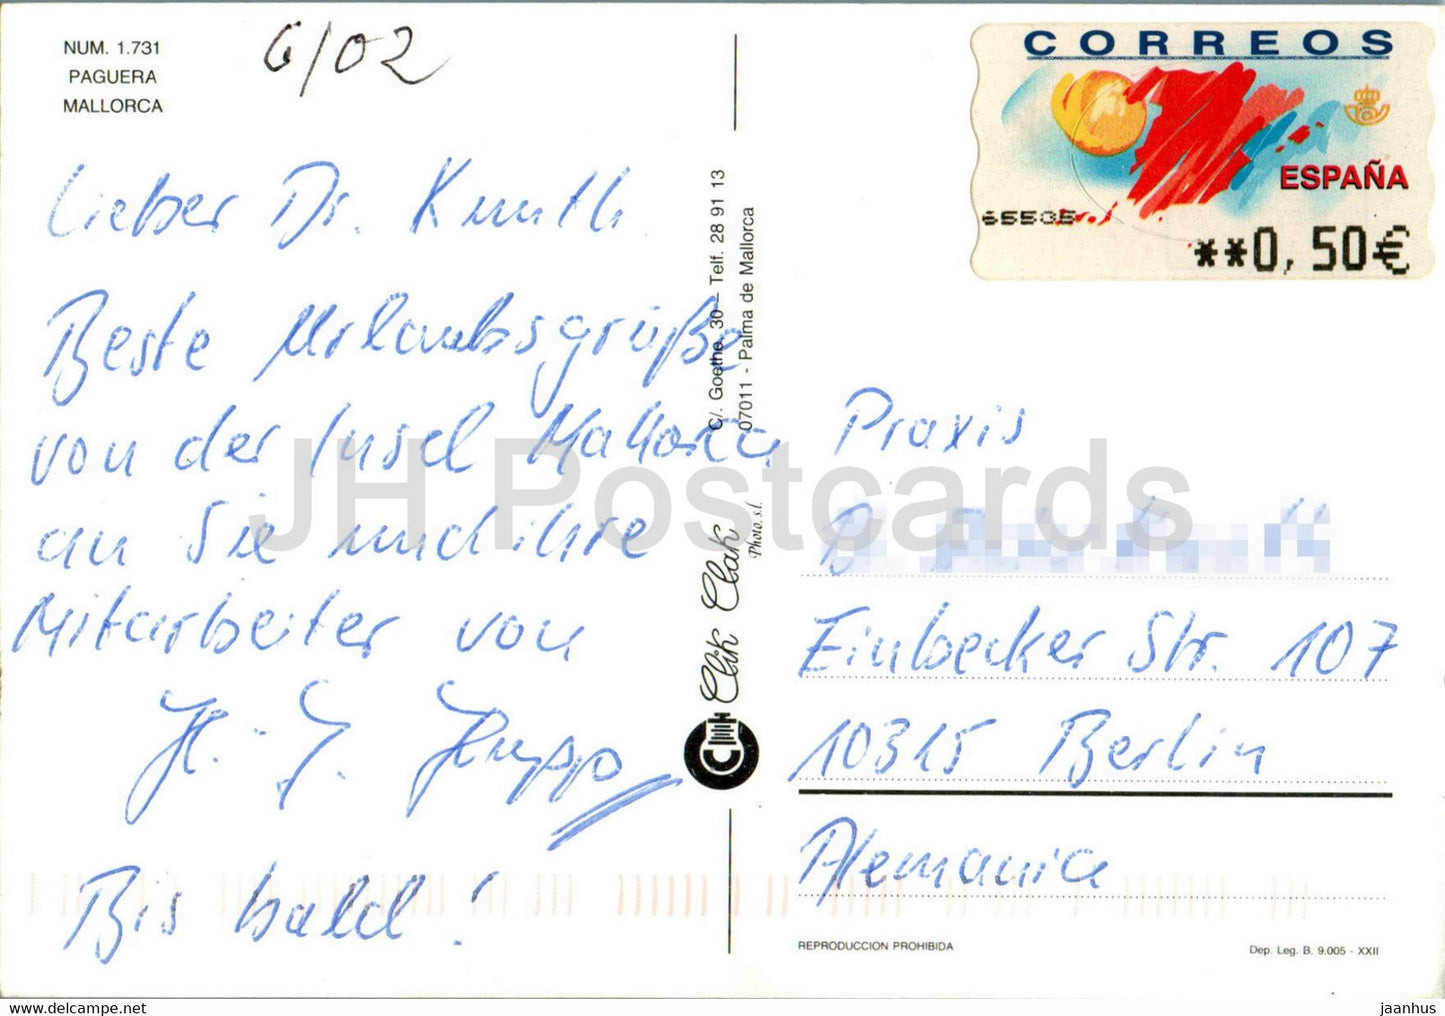 NUM. 1.731
PAGUERA
MALLORCA
6/02
CORREOS
ESPAÑA
65505
**0,50€
Lieber Dr. Kunth
Beste Urlaubsgrüße
von der Insel Mallorca
an Sie und ihre
Mitarbeiter von
H.-J. Hupp
Bis bald!
C/. Goethe, 30 – Telf. 28 91 13
07011 - Palma de Mallorca
Clik Clak
Photo, s.l.
Praxis
Einbecker Str. 107
10315 Berlin
Alemania
REPRODUCCION PROHIBIDA
Dep. Leg. B. 9.005 - XXII
JH Postcards
https://www.delcampe.net
jaanhus